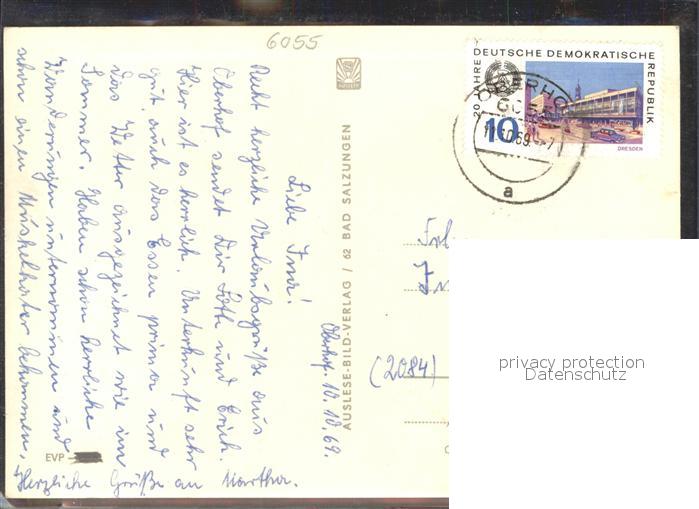 6055
20 JAHRE DEUTSCHE DEMOKRATISCHE REPUBLIK
10
DRESDEN
OBERHOF
6055
10.69.-7
a
Oberhof 10.10.69.
Liebe Inni!
Recht herzliche Urlaubsgrüße aus
Oberhof sendet Dir Käthe und Erich.
Hier ist es herrlich. Unterkunft sehr
gut, auch das Essen prima und
das Wetter ausgezeichnet wie im
Sommer. Haben schon herrliche
Wanderungen unternommen und
schon einen Muskelkater bekommen.
Herzliche Grüße an Martha.
AUSLESE-BILD-VERLAG / 62 BAD SALZUNGEN
EVP
Frl.
(2084)
privacy protection
Datenschutz